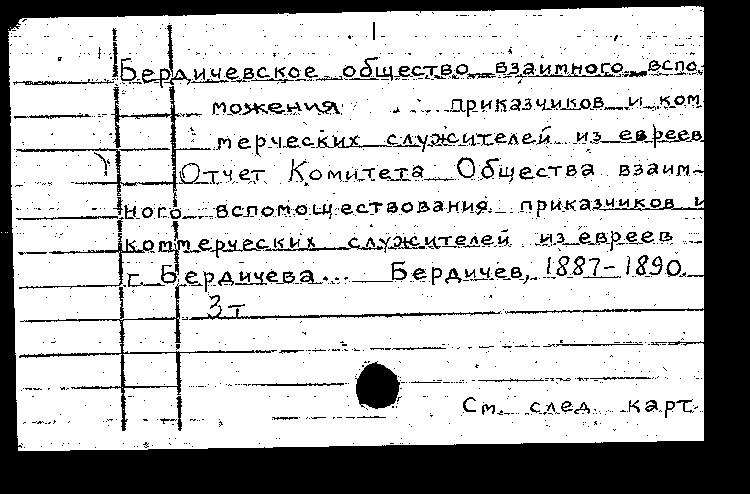 Бердичевское общество взаимного вспо-
можения .. приказчиков и ком
мерческих служителей из евреев
Отчет Комитета Общества взаим-
ного вспомоществования приказчиков и
коммерческих служителей из евреев
г. Бердичева... Бердичев, 1887-1890.
3 т
См. след. карт.